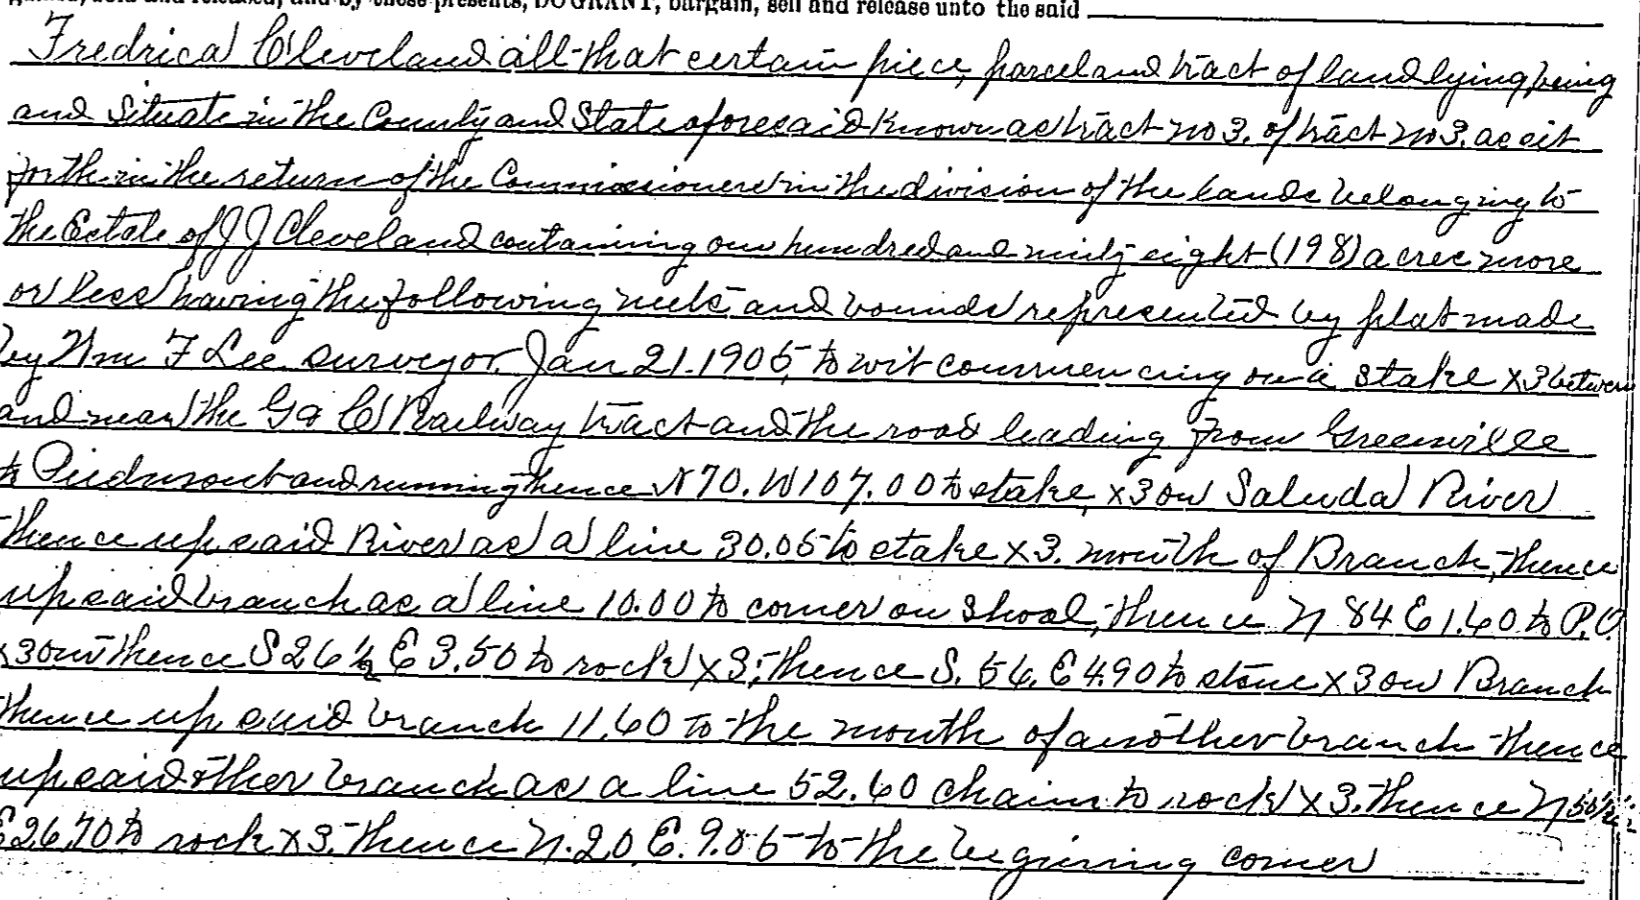 and by these presents, DO GRANT, bargain, sell and release unto the said
Fredrica Cleveland all that certain piece, parcel and tract of land lying, being
and situate in the County and State aforesaid known as tract no 3. of tract no 3. as set
forth in the return of the Commissioners in the division of the lands belonging to
the Estate of J J Cleveland containing one hundred and ninty eight (198) acres more
or less having the following meets and bounds represented by plat made
by Wm F Lee surveyor, Jan 21. 1905, to wit commencing on a stake x3 between
and near the Ga C Railway tract and the road leading from Greenville
to Piedmont and running thence N 70. W 107.00 to stake, x3 on Saluda River
thence up said River as a line 30.05 to stake x3. mouth of Branch, thence
up said branch as a line 10.00 to corner on Shoal, thence N 84 E 1.60 to P.O.
x3 thence S 26 1/2 E 3.50 to rock x3, thence S. 54. E 4.90 to stone x3 on Branch
thence up said branch 11.60 to the mouth of another branch thence
up said other branch as a line 52.60 chains to rock x3. thence N
E 26.70 to rock x3. thence N. 20. E. 9.05 to the beginning corner